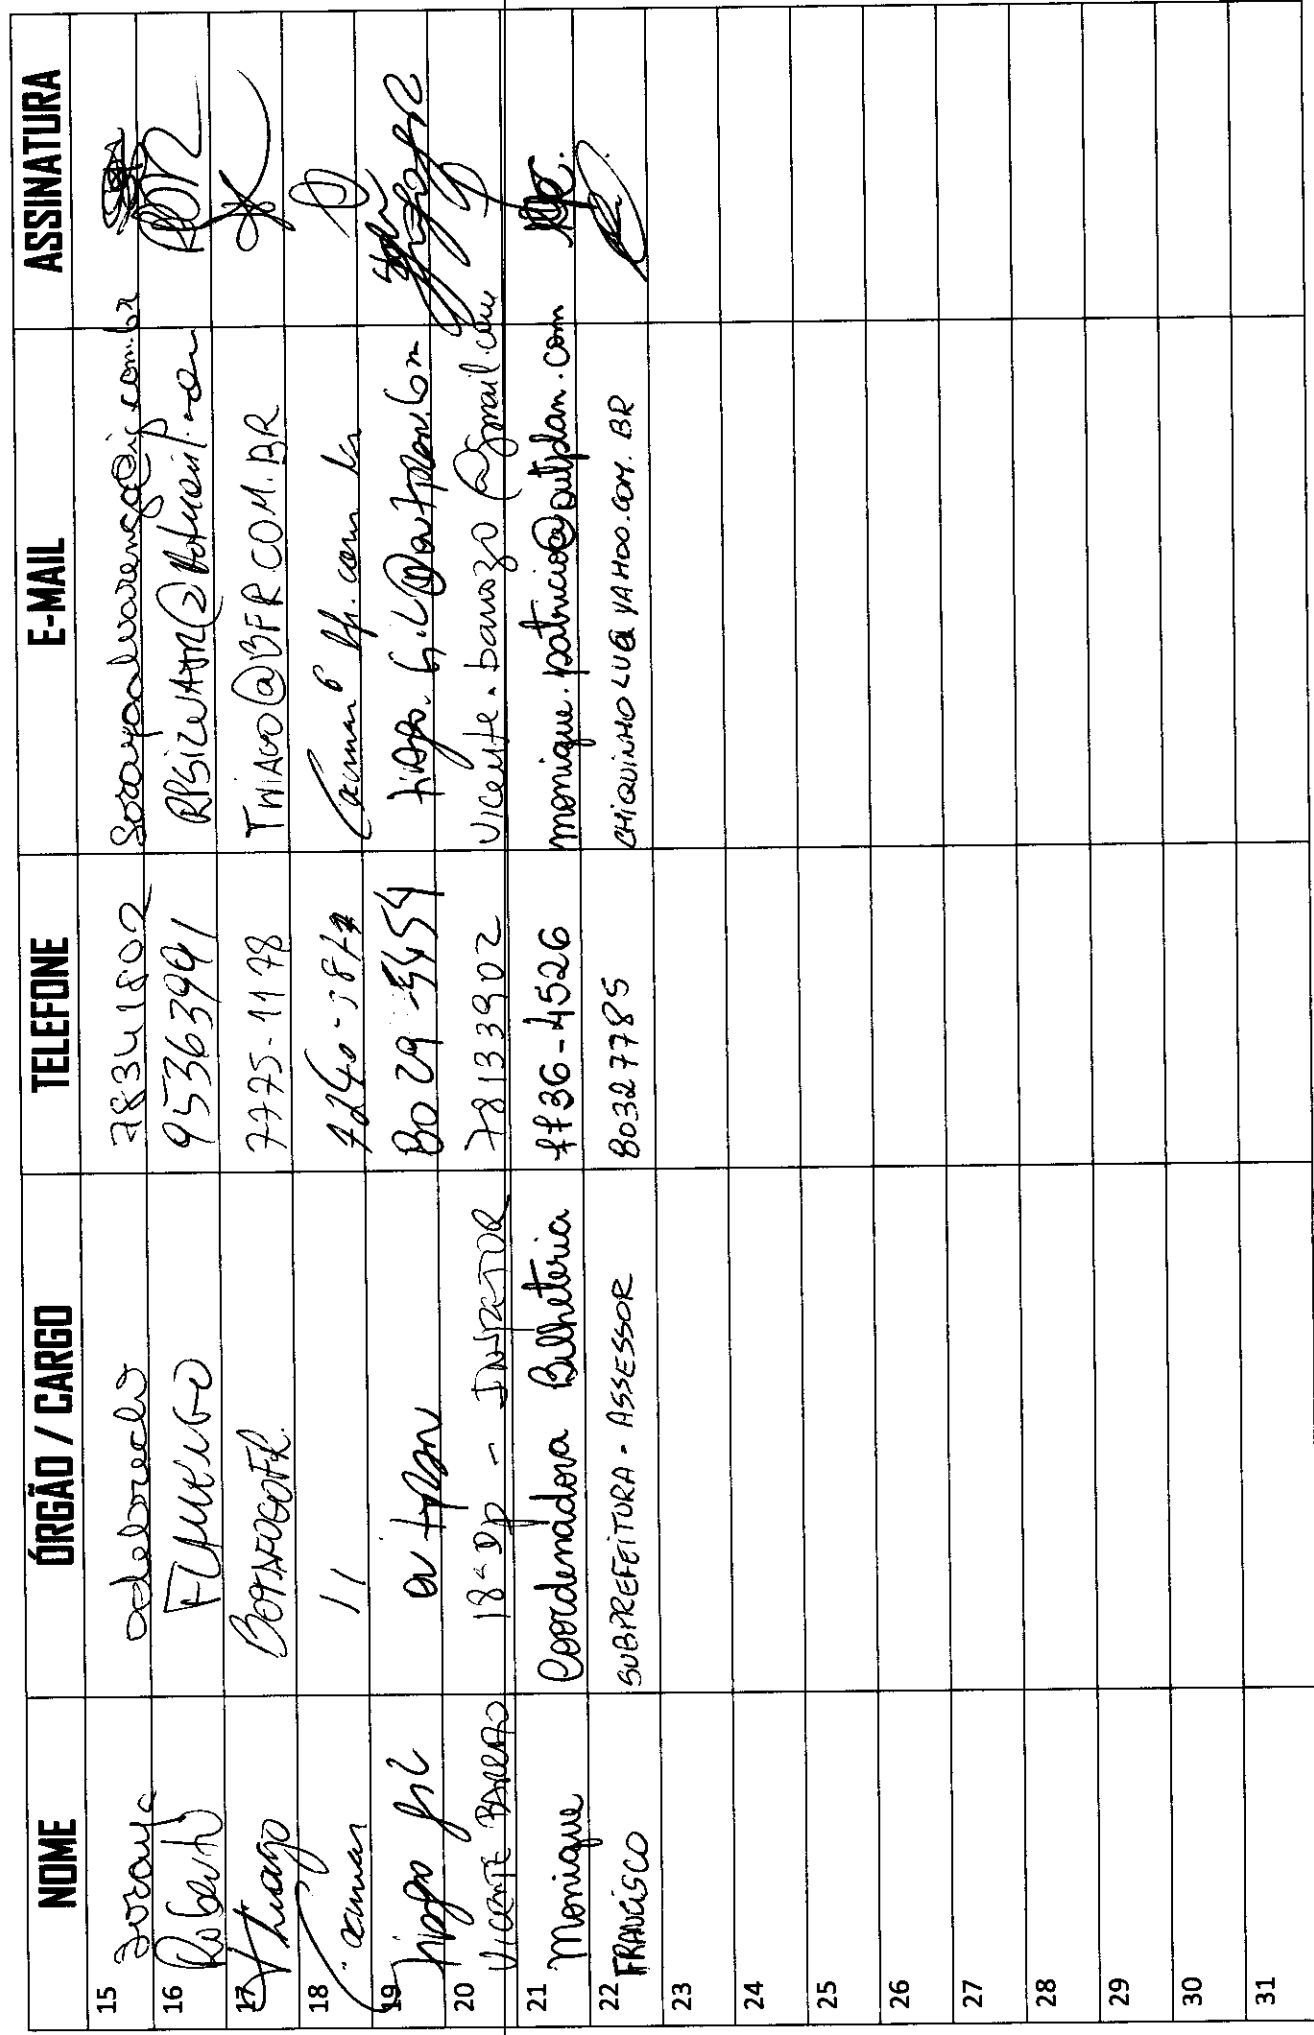 NOME ÓRGÃO / CARGO TELEFONE E-MAIL ASSINATURA
15 Soraya odebrecht 78341802 sorayaalvarenga@ig.com.br
16 Roberto FLAMENGO 95363991
17 Thiago BOTAFOGOFR. 7775-1178 THIAGO@BFR.COM.BR
18 " bfr.com.br
19 Tiago Gil outplan 8029-5454 tiago.gil@outplan.br
20 VICENTE BARROZO 18ª DP - INSPETOR 78133902 Vicente.barrozo@gmail.com
21 Monique Coordenadora Bilheteria 7736-4526 monique.patricio@outplan.com
22 FRANCISCO SUBPREFEITURA - ASSESSOR 80327785 CHIQUINHOLU@YAHOO.COM.BR
23
24
25
26
27
28
29
30
31